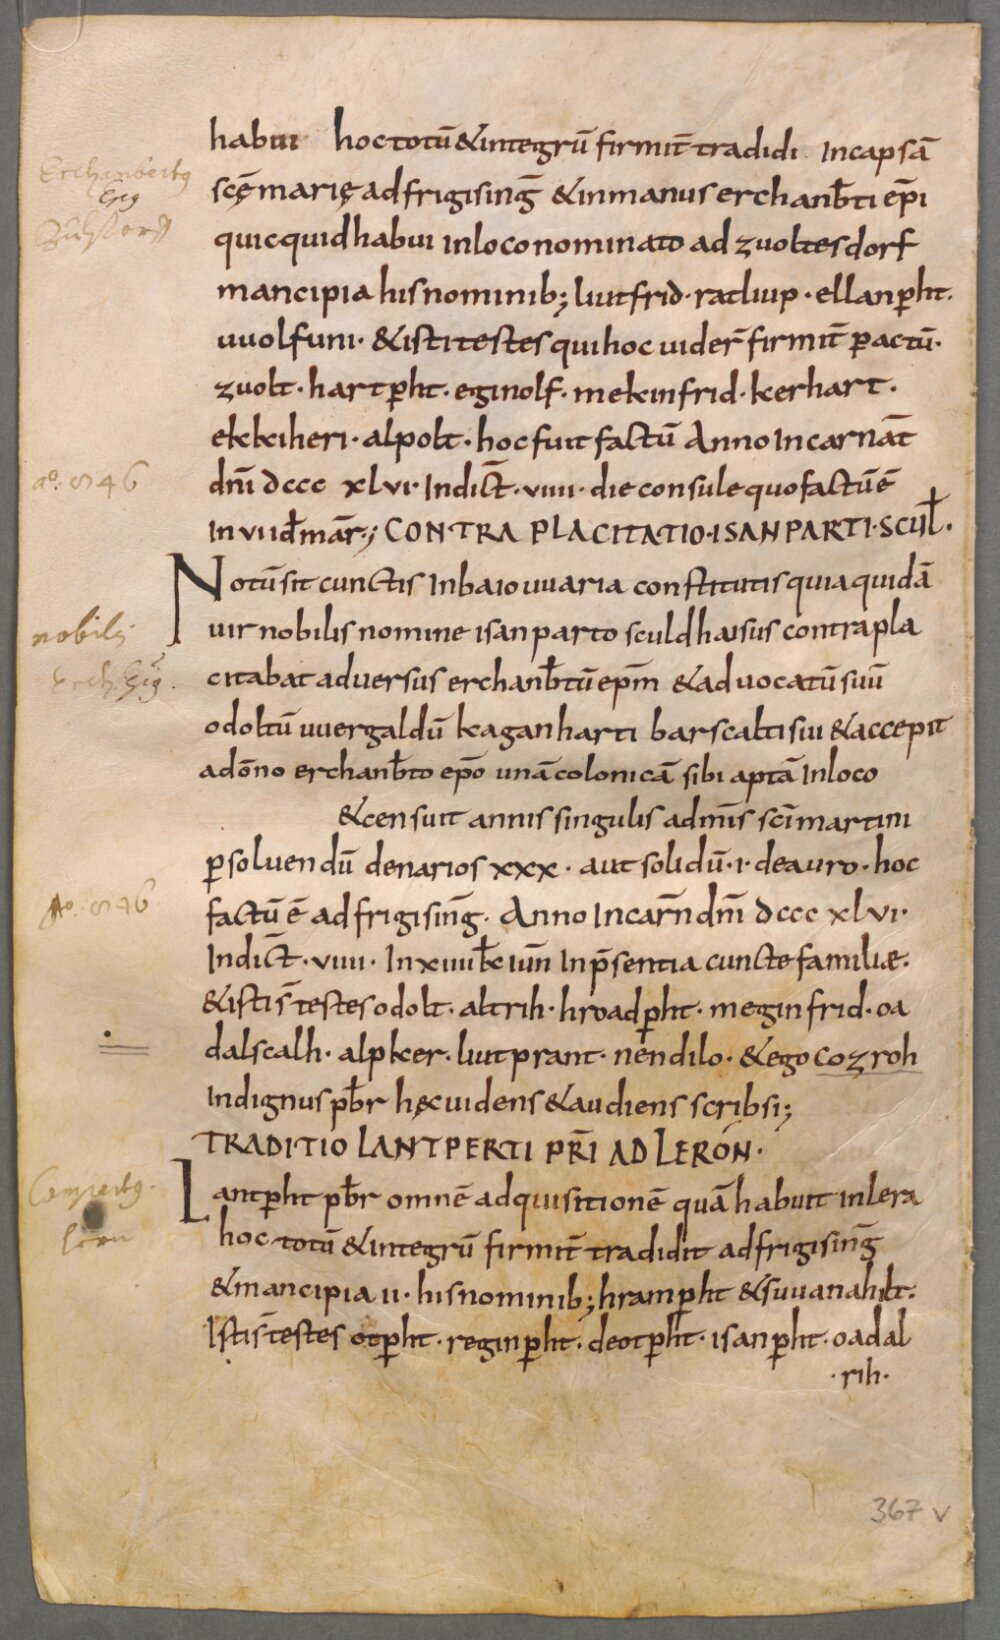 habui hoc totū & integrū firmit̄ tradidi. In capsā
scę̄ marię ad frigising̅ & in manus erchanb̄ti ep̄i
quicquid habui in loco nominato ad zuoltesdorf
mancipia his nominib; liutfrid · ratluip · ellanp̱ht.
uuolfuni · & isti testes qui hoc uider̄ firmit̄ p̱actū·
zuolt · hartp̱ht · eginolf · mekinfrid · kerhart ·
ekkiheri · alpolt · hoc fuit factū Anno Incarnat̄
dn̄i dccc xlvi · Indict̄ · viiii · die consule quo factū ē
In vii id̄ mar̄·; CONTRA PLACITATIO · ISANPARTI · SCUL̄ ·
Notū sit cunctis In baiouuaria constitutis quia quidā
uir nobilis nomine isanparto sculdhaisus contrapla
citabat adversus erchanb̄tū ep̄m & aduocatū suū
odoltū uuergaldū kaganharti barscalti sui & accepit
a dōno erchanb̄to ep̄o unā colonicā sibi aptā In loco
& censuit annis singulis ad mis̄ sc̄i martini
p̱soluendū denarios xxx · aut solidū · i · de auro · hoc
factū ē ad frigising̅ · Anno Incarn̄ dn̄i dccc xlvi ·
Indict̄ · viiii · In xiiii kł iun̄ In p̄sentia cuncte familiæ.
& isti s̄ testes odolt · altrih · hroadp̱ht · meginfrid · oa
dalscalh · alpker · liutprant · nendilo · & ego cozroh
Indignus pb̄r hęc uidens & audiens scribsi;
TRADITIO LANTPERTI PR̄I AD LERON ·
Lantp̱ht pb̄r omnē adquisitionē quā habuit in lera
hoc totū & integrū firmit̄ tradidit ad frigising̅
& mancipia ii · his nominib; hramp̱ht & suuanahilt.
Isti s̄ testes otp̱ht · reginp̱ht · deotp̱ht · isanp̱ht · oadal
· rih ·
Erchanbertg
Epg
aº. 846
nobilis
Aº. 846
367 v